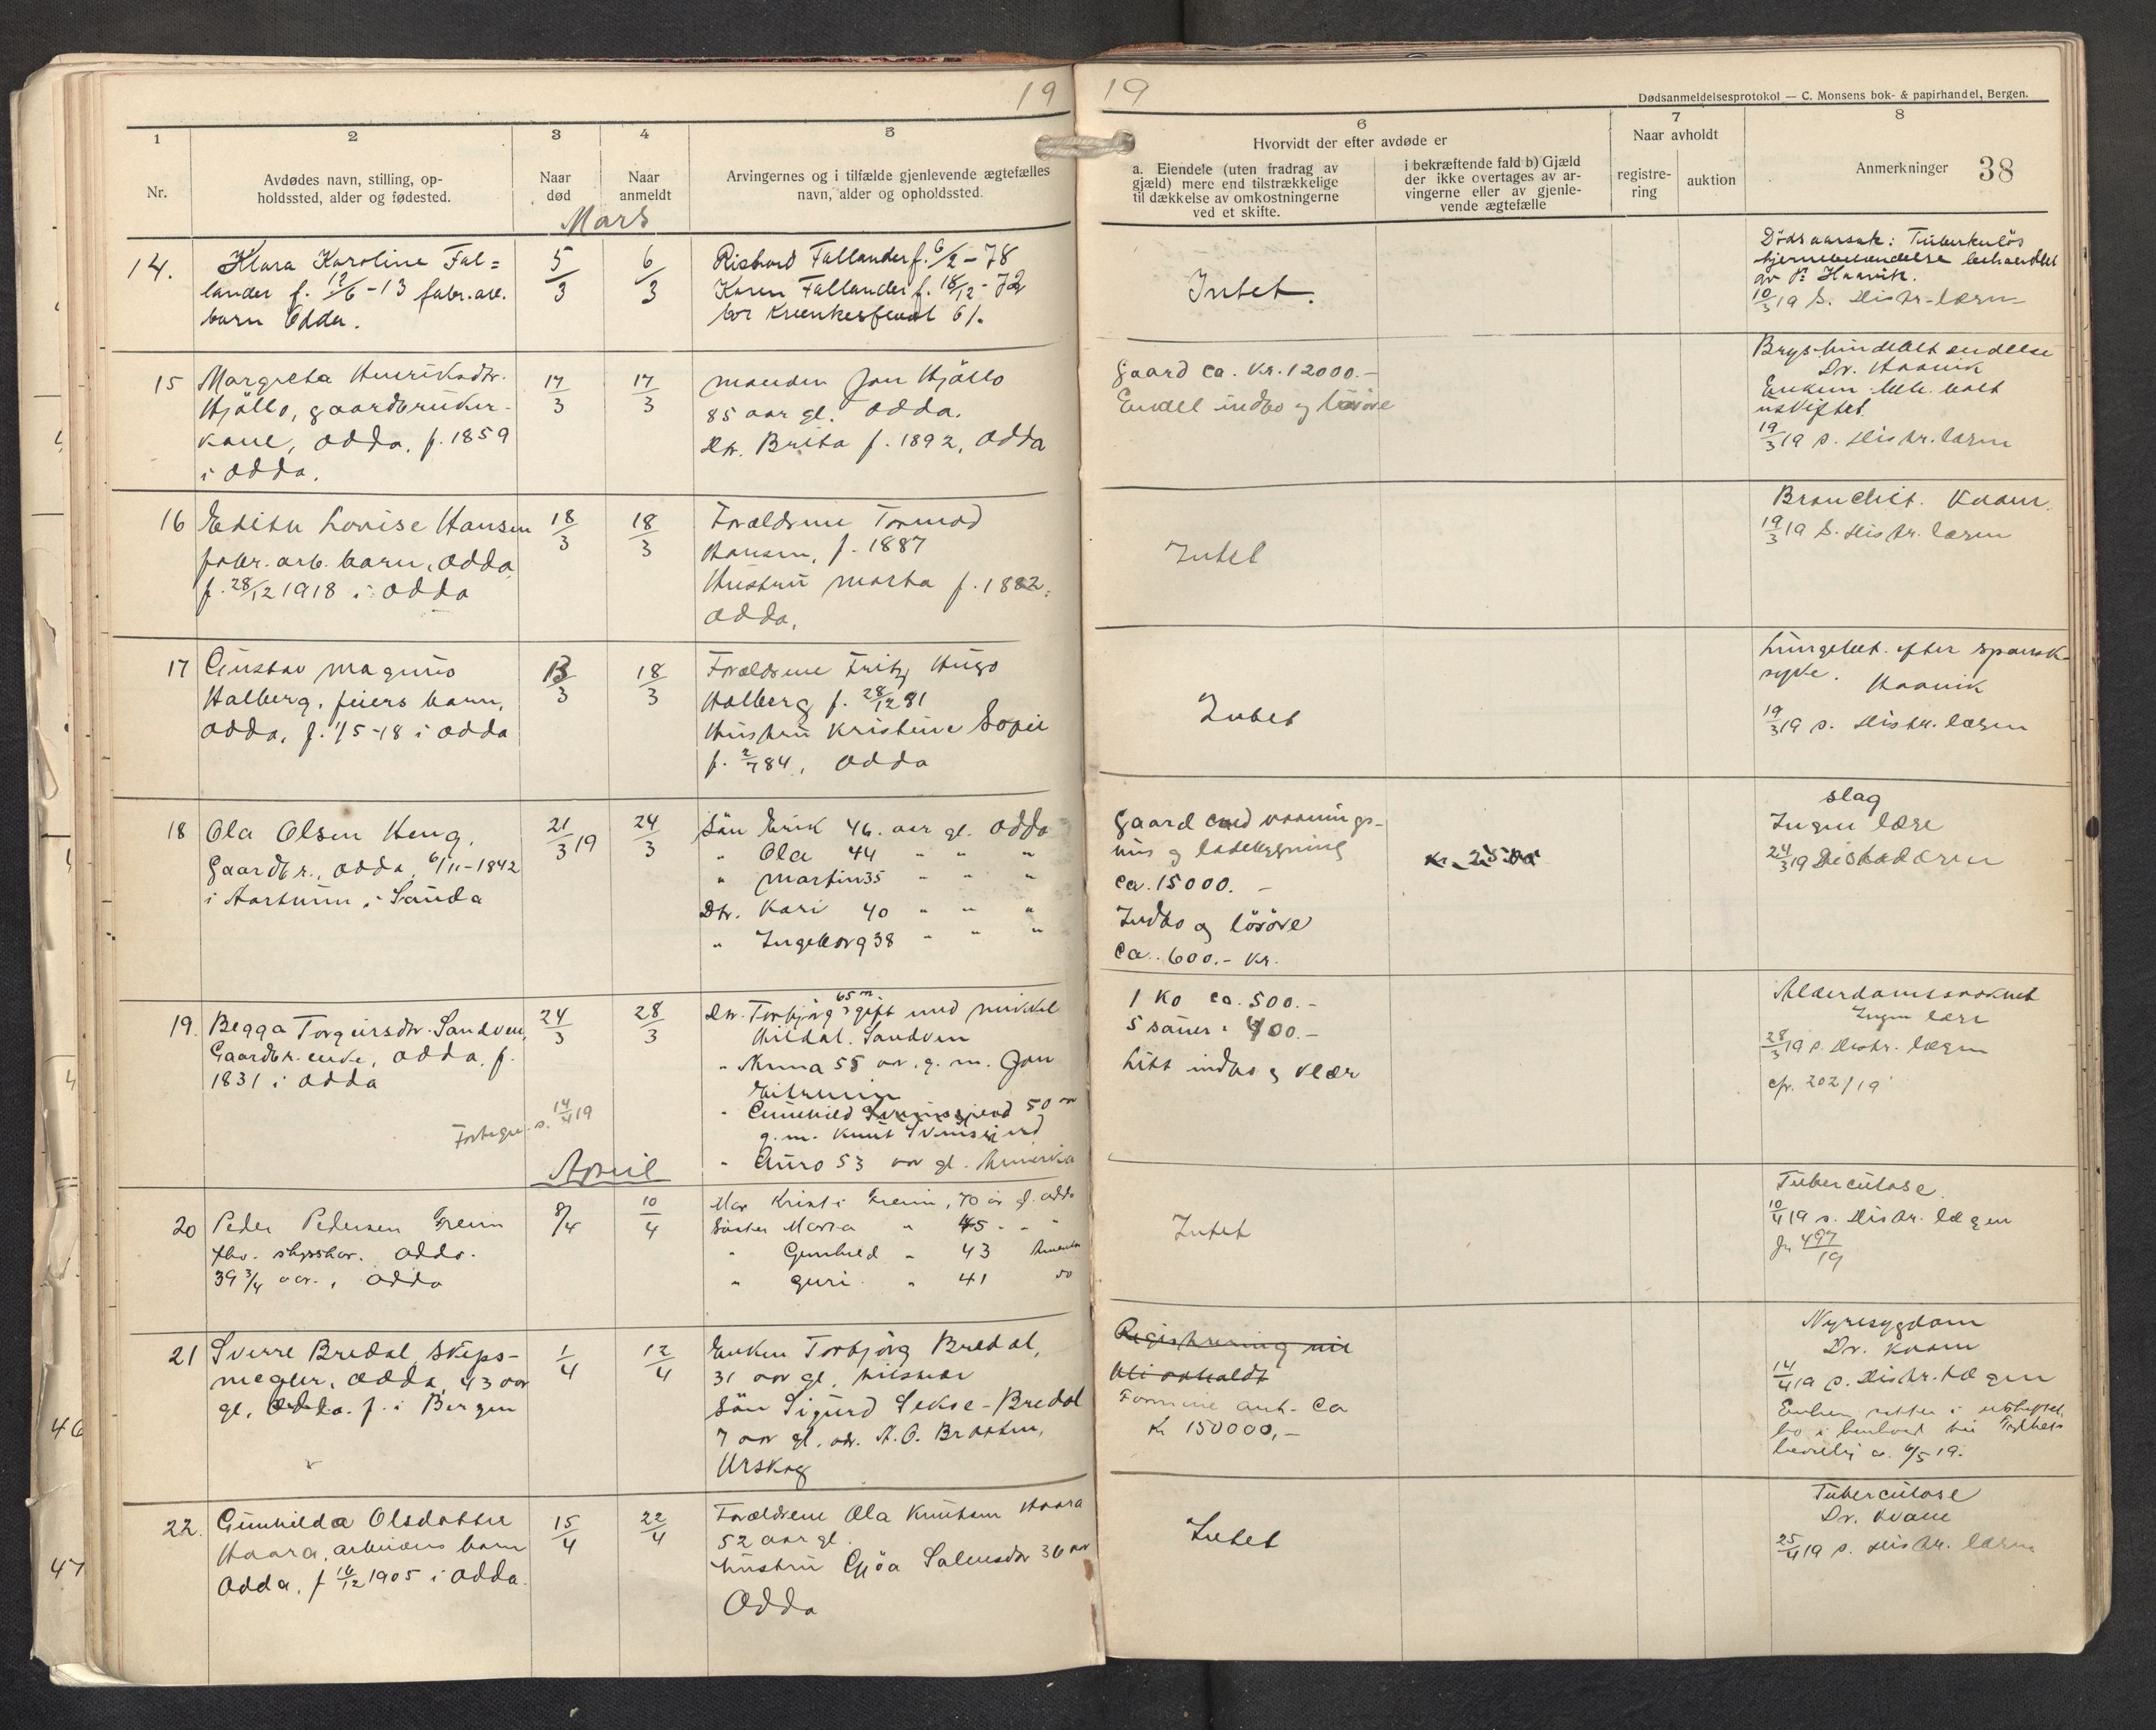 19
19
Dødsanmeldelsesprotokol — C. Monsens bok- & papirhandel, Bergen.
38
1
Nr.
2
Avdødes navn, stilling, op-
holdssted, alder og fødested.
3
Naar
død
4
Naar
anmeldt
5
Arvingernes og i tilfælde gjenlevende ægtefælles
navn, alder og opholdssted.
6
Hvorvidt der efter avdøde er
a. Eiendele (uten fradrag av
gjæld) mere end tilstrækkelige
til dækkelse av omkostningerne
ved et skifte.
i bekræftende fald b) Gjæld
der ikke overtages av ar-
vingerne eller av gjenle-
vende ægtefælle
7
Naar avholdt
registre-
ring
auktion
8
Anmerkninger
Mars
14.
Klara Karoline Fal=
lander f. 12/6-13 fabr.arb.
barn Odda.
5/3
6/3
Rickard Fallander f. 6/2-78
Karen Fallander f. 18/12-72
Intet.
Dødsaarsak: Tuberkuløs
hjernebetændelse behandlet
av Dr Haavik.
10/3 19 S. Distr-lægen
15
Margreta Henriksdtr.
Hjøllo, gaardbruker-
kone, Odda, f. 1859
i Odda.
17/3
17/3
Manden Jon Hjøllo
85 aar gl. Odda.
Dtr. Brita f. 1892, Odda
Gaard ca. Kr. 12000.-
Endel indbo og løsøre
Brysthindebetændelse
Dr. Haavik
uskiftet
19/3 19 s. Distr. lægen
16
Edith Lovise Hansen
fabr. arb. barn, Odda,
f. 28/12 1918 i Odda
18/3
18/3
Forældrene Tormod
Hansen, f. 1887
Hustru Marta f. 1882.
Odda.
Intet
Bronchit. Kvam.
19/3 19 S. Distr. lægen
17
Gustav Magnus
Halberg, feiers barn,
Odda, f. 1/5-18 i Odda
13/3
18/3
Forældrene Fritz Hugo
Halberg f. 28/12 81
Hustru Kristine Sopie
f. 2/7 84, Odda
Intet
Lungebet. efter spansk-
syke. Haavik
19/3 19 s. Distr. lægen
18
Ola Olsen Heng,
Gaardbr., Odda, 6/11-1842
i Aartunn, i Sauda
21/3 19
24/3
Søn Erik 46. aar gl. Odda
" Ola 44 " " "
" Martin 35 " " "
Dtr. Kari 40 " " "
" Ingeborg 38 " " "
Gaard med vaanings-
hus og ladebygning
ca. 15000.-
Indbo og løsøre
ca. 600.- Kr.
Kr. 2500
slag
Ingen læge
24/3 19 Distr. lægen
19.
Begga Torgeirsdtr. Sandven,
Gaardbr. enke, Odda, f.
1831 i Odda
14/4 19
24/3
28/3
Dtr. Torbjørg 65 gift med Mikkel
Hildal. Sandven
" Anna 55 aar. g. m. Jon
Eitrheim
" Gunhild 50
g.m. Knut
" Guro 53 aar gl. Amerika
1 Ko ca. 500.-
5 sauer " 400.-
Litt indbo og klær
Alderdomssvakhet
Ingen læge
28/3 19 s. Distr. lægen
cfr. 202/19
April
20
Peder Pedersen Freim
39 3/4 aar. , Odda
8/4
10/4
Mor Kristi Freim, 70 år gl. Odda
Søster Marta " 45 - - "
" Gunhild " 43 Amerika
" Guri " 41 do
Intet
Tuberculose.
10/4 19 s. Distr. lægen
Jr. 497/19
21
Sverre Bredal, Skips-
megler, Odda, 43 aar
gl, Odda. f. i Bergen
1/4
12/4
Enken Torbjørg Bredal,
31 aar gl.
Søn Sigurd Sekse-Bredal
7 aar gl. adr. A. O. Braaten,
Urskog
Registrering vil
bli avholdt
Formue anh. ca
Kr 150000,-
Nyresygdom
Dr. Kvam
14/4 19 s. Distr. lægen
Enken sitter i uskiftet
6/5 19.
22.
Gunhilda Olsdotter
Haara, arbeiders barn
Odda, f 16/12 1905 i Odda.
15/4
22/4
Forældrene Ola Knutsen Haara
52 aar gl.
Hustru Gjøa Salensdtr 36 aar
Odda
Intet
Tuberculose
Dr. Kvam
25/4 19 s. Distr. lægen
46
47